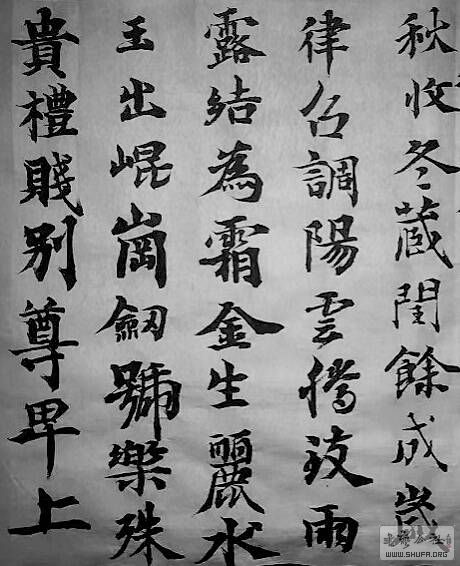 秋收冬蔵閏餘成歲
律召調陽雲騰致雨
露結為霜金生麗水
玉出崐崗劒號樂殊
貴禮賤別尊卑上
WWW.SHUFA.ORG